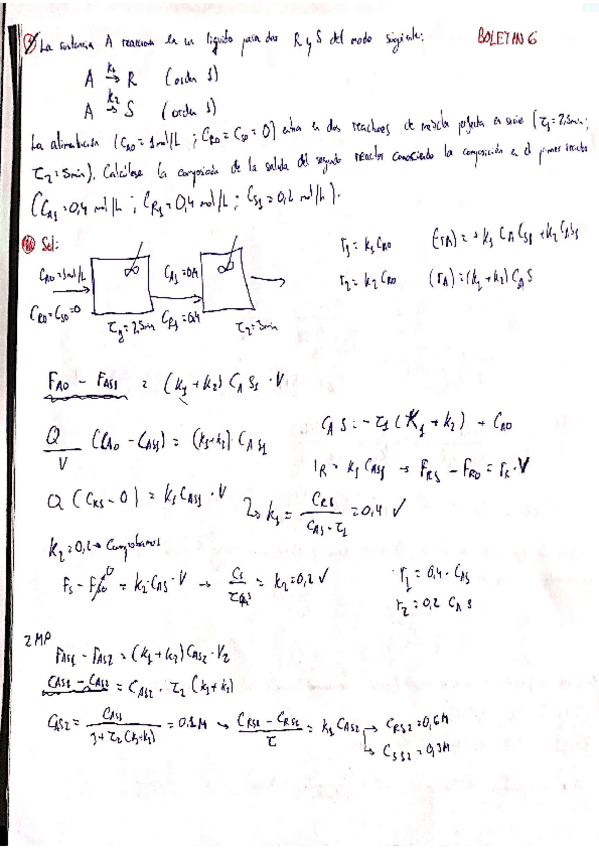 BOLETIN 6
La sustancia A reacciona en un líquido para dar R y S del modo siguiente:
A →k₁ R (orden 1)
A →k₂ S (orden 1)
La alimentación (C_A0 = 1 mol/L ; C_R0 = C_S0 = 0) entra en dos reactores de mezcla perfecta en serie (τ₁ = 2,5min;
τ₂ = 5min). Calcúlese la composición de la salida del segundo reactor conociendo la composición en el primer reactor
(C_A1 = 0,4 mol/L ; C_R1 = 0,4 mol/L ; C_S1 = 0,2 mol/L).
Sol:
C_A0 = 1mol/L
C_R0 = C_S0 = 0
τ₁ = 2,5min
C_A1 = 0,4
C_R1 = 0,4
r₁ = k₁ C_A0
r₂ = k₂ C_A0
(r_A) = (k₁ + k₂) C_A S
F_A0 - F_AS1 = (k₁ + k₂) C_A S1 · V
Q/V (C_A0 - C_AS1) = (k₁ + k₂) · C_A S1
C_A S = -τ₁ (k₁ + k₂) + C_A0
r_R = k₁ C_AS1 → F_RS - F_R0 = r_R · V
Q (C_RS - 0) = k₁ C_AS1 · V
↳ k₁ = C_RS / (C_AS · τ₁) = 0,4 ✓
k₂ = 0,2 → Comprobamos
F_S - F_S0 = k₂ · C_AS · V → = k₂ = 0,2 ✓
r₁ = 0,4 · C_AS
r₂ = 0,2 C_A S
2 MP
F_AS1 - F_AS2 = (k₁ + k₂) C_AS2 · V₂
C_AS1 - C_AS2 = C_AS2 · τ₂ (k₁ + k₂)
C_AS2 = C_AS1 / (1 + τ₂ (k₁ + k₂)) = 0,1M → (C_RS2 - C_RS1) / τ = k₁ C_AS2 → C_RS2 = 0,6M
→ C_SS2 = 0,3M